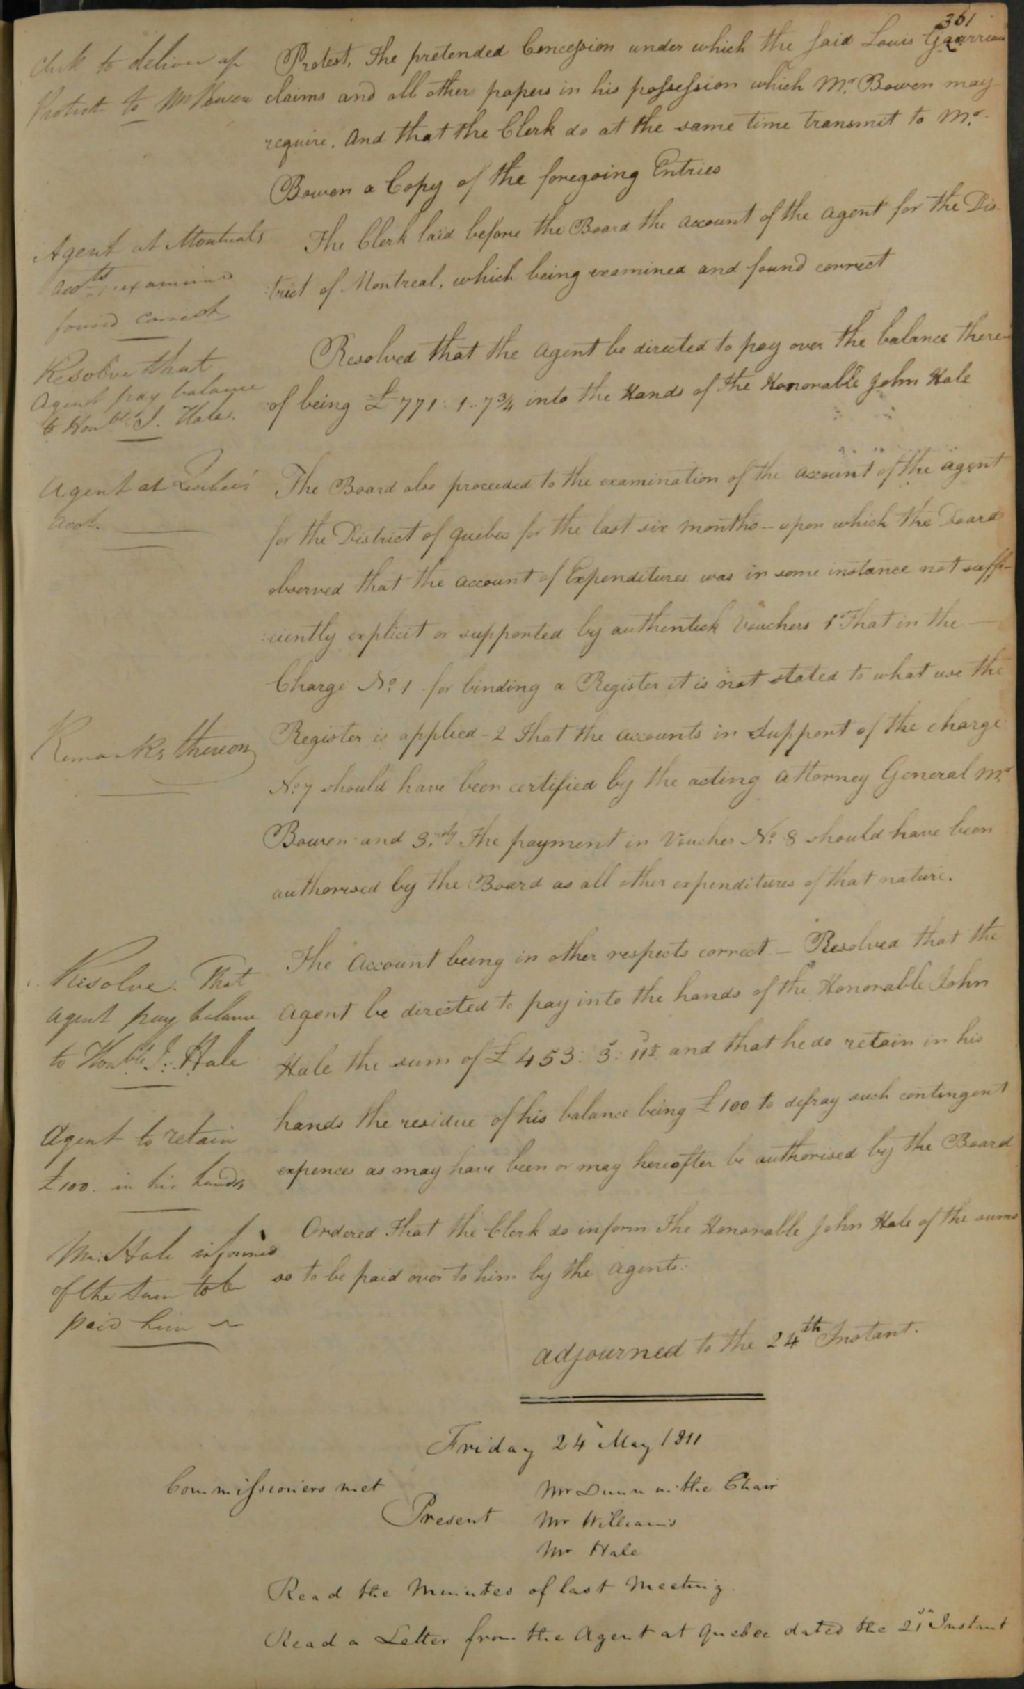 361
Clerk to deliver up
Protest to Mr Bowen
Protest, The pretended Concession under which the said Louis
claims and all other papers in his possession which Mr. Bowen may
require. And that the Clerk do at the same time transmit to Mr.
Bowen a Copy of the foregoing Entries
Agent at Montreals
accots examined
found correct
The Clerk laid before the Board the account of the agent for the Dis-
:trict of Montreal, which being examined and found correct
Resolve that
Agent pay balance
to Honble J. Hale.
Resolved that the agent be directed to pay over the balance there-
of being £771:1..7¾ into the Hands of the Honorable John Hale
Agent at Quebec's
Acct.
The Board also proceeded to the examination of the account of the agent
for the District of Quebec for the last six months – upon which the Board
observed that the account of Expenditures was in some instance not suffi-
:ciently explicit or supported by authentick Vouchers 1st That in the
Charge No. 1 for binding a Register it is not stated to what use the
Remarks thereon
Register is applied – 2 That the accounts in support of the charge
No 7 should have been certified by the acting attorney General Mr
Bowen and 3.rdly The payment in Voucher No. 8 should have been
authorised by the Board as all other expenditures of that nature.
Resolve. That
agent pay balance
to Honble J: Hale
The Account being in other respects correct – Resolved that the
Agent be directed to pay into the hands of the Honorable John
Hale the sum of £453: 3: and that he do retain in his
Agent to retain
£100. in his hands
hands the residue of his balance being £100 to defray such contingent
expences as may have been or may hereafter be authorised by the Board
Mr. Hale informed
of the Sum to be
paid him
Ordered That the Clerk do inform The Honorable John Hale of the sums
so to be paid over to him by the Agents.
adjourned to the 24th Instant.
Friday 24th May 1811
Commissioners met
Present
Mr Dunn in the Chair
Mr Williams
Mr Hale
Read the Minutes of last Meeting
Read a Letter from the Agent at Quebec dated the 21st Instant